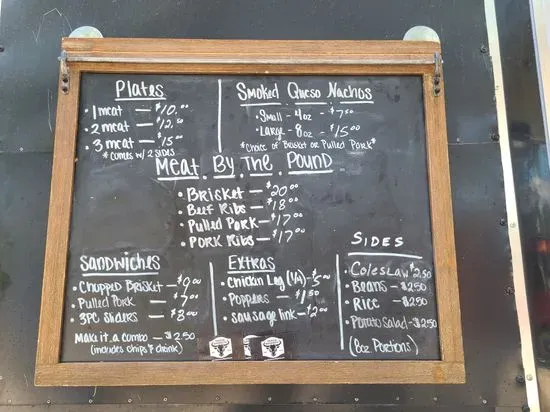 Plates
• 1 meat — $10.00
• 2 meat — $12.50
• 3 meat — $15.00
*comes w/ 2 SIDES
Smoked Queso Nachos
• Small - 4oz - $7.50
• Large - 8oz - $15.00
*Choice of Brisket or Pulled Pork*
Meat By The Pound
• Brisket — $20.00
• Beef Ribs — $18.00
• Pulled Pork — $17.00
• Pork Ribs — $17.00
Sandwiches
• Chopped Brisket — $9.00
• Pulled Pork — $7.00
• 3PC Sliders — $8.00
Make it a combo — $2.50
(includes chips & drink)
Extras
• Chicken Leg (1/4) - $5.00
• Poppers — $1.50
• Sausage link — $2.00
SIDES
• Coleslaw $2.50
• Beans — $2.50
• Rice — $2.50
• Potato Salad — $2.50
(8oz Portions)